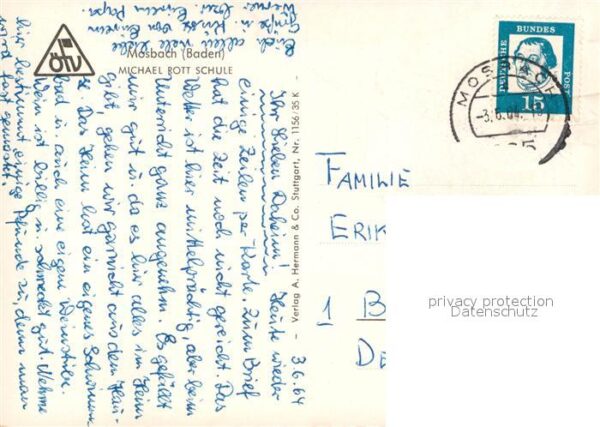 ötv
Mosbach (Baden)
MICHAEL ROTT SCHULE
3.6.64
Ihr Lieben Daheim! Heute wieder
einige Zeilen per Karte. Zum Brief
hat die Zeit noch nicht gereicht. Das
Wetter ist hier mittelprächtig, aber beim
Unterricht ganz angenehm. Es gefällt
mir gut u. da es hier alles im Heim
gibt, gehen wir garnicht aus dem Hau-
se. Das Heim hat ein eigenes Schwimm-
bad u. auch eine eigene Weinstube.
Wein ist billig u. schmeckt gut. Nehme
hier bestimmt einige Pfunde zu, denn man
wird fast gemästet.
Euch allen viele liebe
Grüße u. Küsse von Eurem
Werner bzw. Eurem Papa.
Verlag A. Hermann & Co. Stuttgart, Nr. 1156/35 K
DEUTSCHE
BUNDES
POST
15
MOSBACH
-3.6.64
FAMILIE
ERIK
1 B
DE
privacy protection
Datenschutz